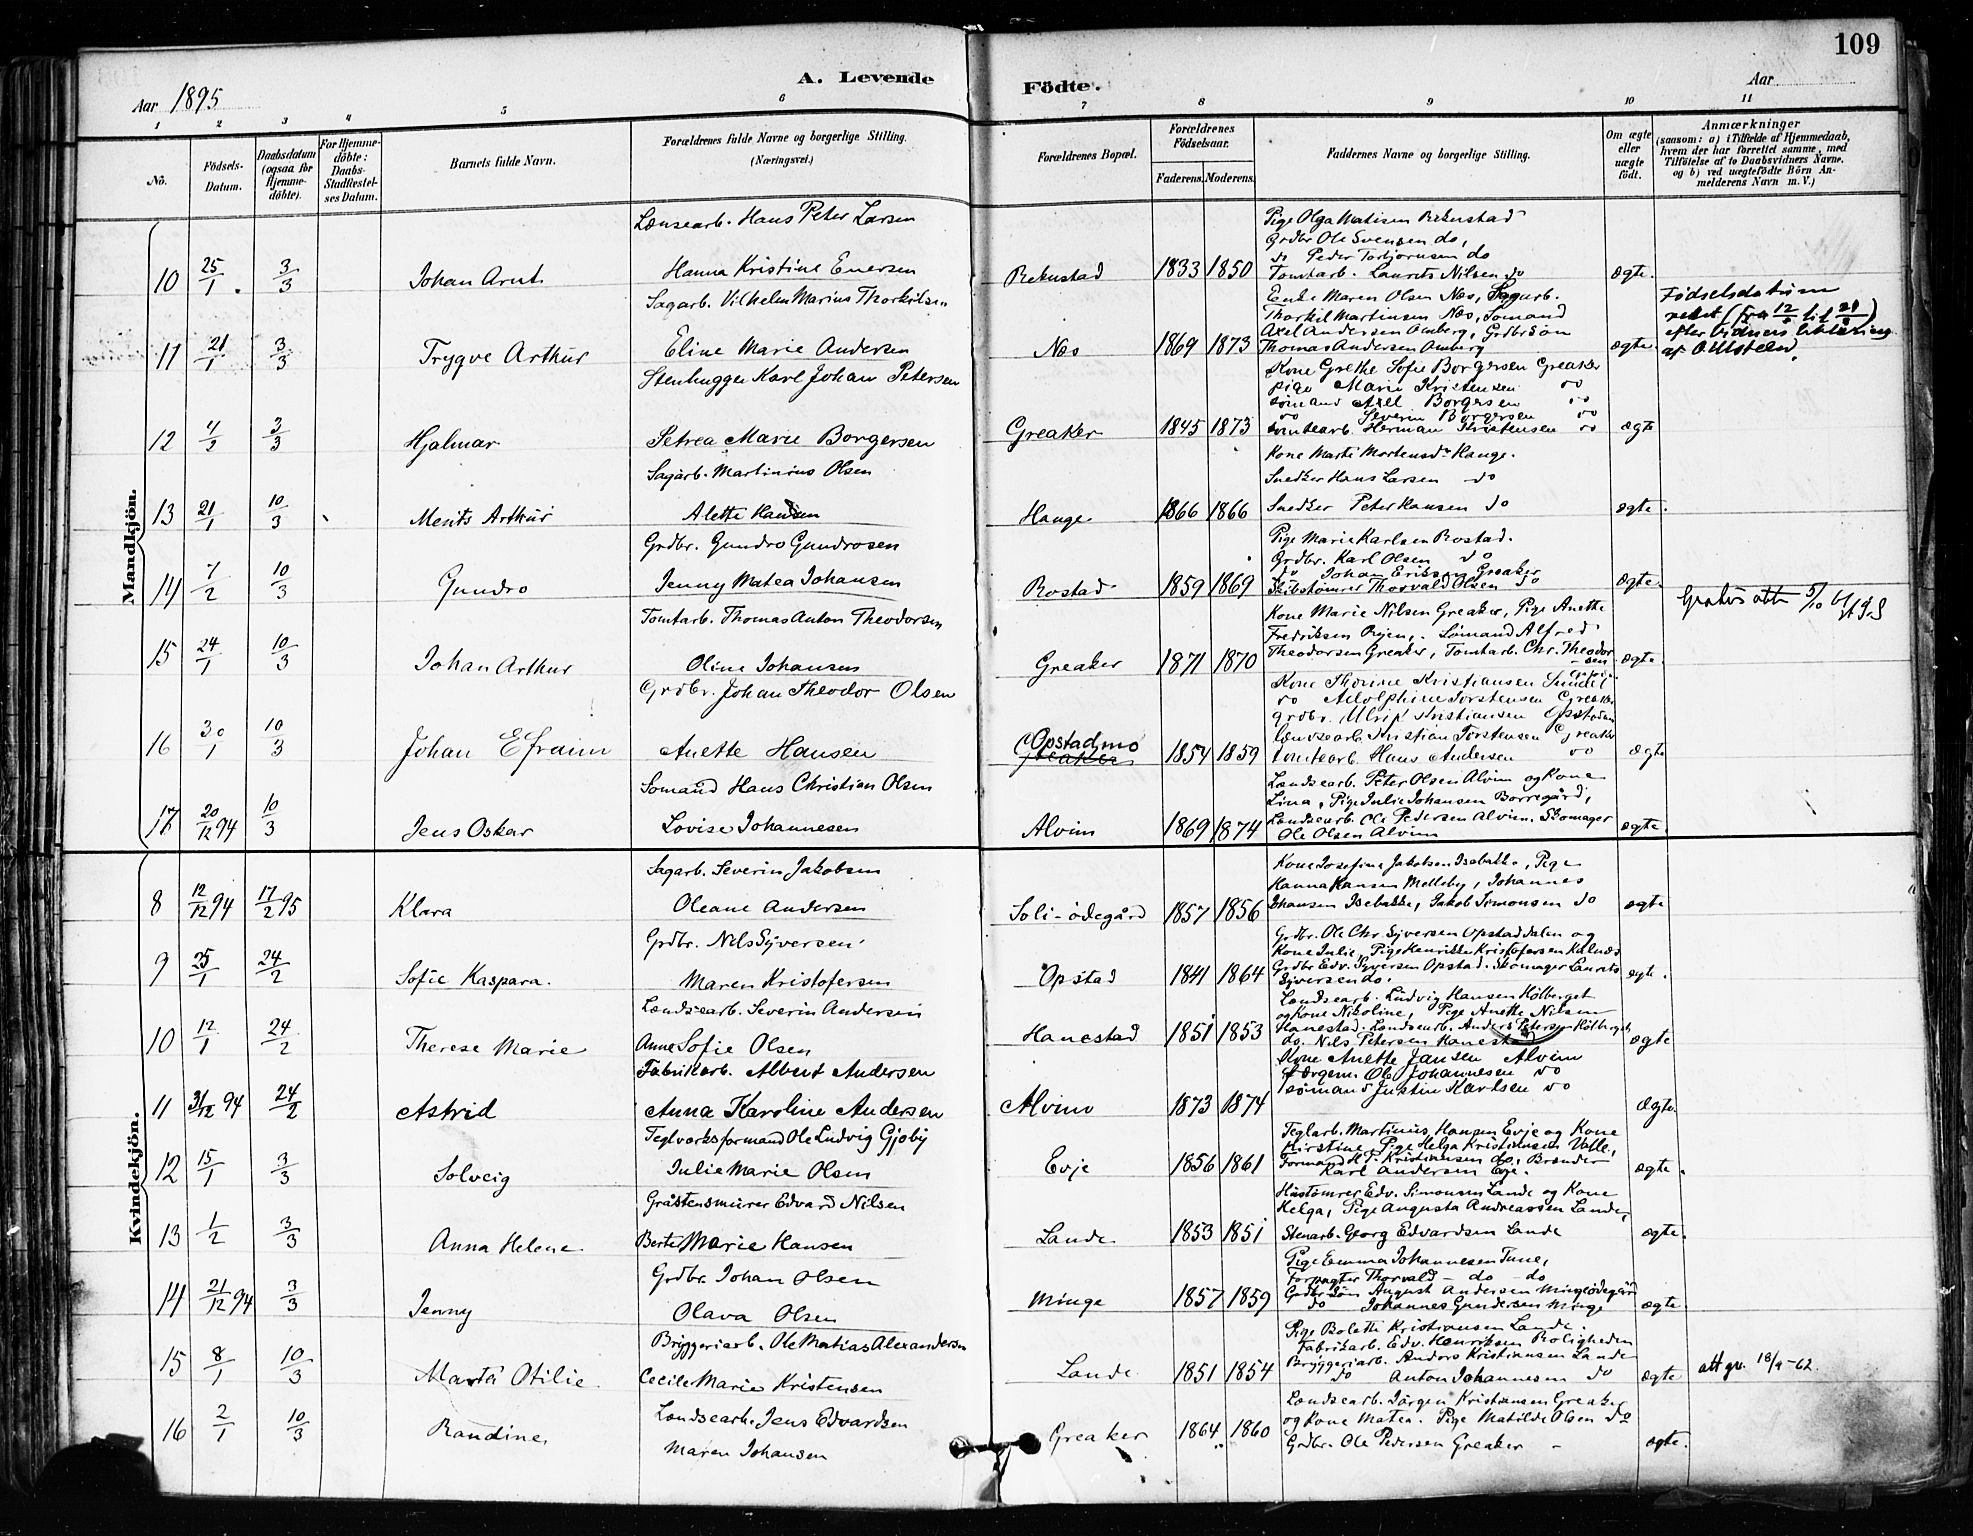 109
A. Levende Födte.
Aar 1895
Aar
1 2 3 4 5 6 7 8 9 10 11
No.
Födsels-Datum.
Daabsdatum (ogsaa for Hjemme-döbte).
For Hjemme-döbte: Daabs-Stadfæstel-ses Datum.
Barnets fulde Navn.
Forældrenes fulde Navne og borgerlige Stilling. (Næringsvei.)
Forældrenes Bopæl.
Forældrenes Födselsaar.
Faderens. Moderens.
Faddernes Navne og borgerlige Stilling.
Om ægte eller uægte födt.
Anmærkninger
(saasom: a) i Tilfælde af Hjemmedaab, hvem der har forrettet samme, med Tilföielse af to Daabsvidners Navne. og b) ved uægtefödte Börn An-melderens Navn m. V.)
Mandkjön.
Lænsearb. Hans Peter Larsen
Pige Olga Matisen Rekustad
Grdbr Ole Svensen do,
do Peder Torbjörnsen do
10 25/1 3/3 Johan Arnt Hanna Kristine Enersen Rekustad 1833 1850 Tomtarb. Laurits Nilsen do ægte.
Sagarb. Vilhelm Marius Thorkilsen
Enke Maren Olsen Næs, Sagarb.
Thorkil Martinsen Næs, Sömand
Axel Andersen Omberg, Grdbr Sön
11 21/1 3/3 Trygve Arthur Eline Marie Andersen Næs 1869 1873 Thomas Andersen Omberg ægte.
Födselsdatum
rettet (fra 12/1 til 21/1)
efter Vidners
af
Stenhugger Karl Johan Petersen
Kone Grethe Sofie Borgersen Greaker
Pige Marie Kristensen do
Sömand Axel Borgersen do
do Severin Borgersen do
12 4/2 3/3 Hjalmar Petrea Marie Borgersen Greaker 1845 1873 Tomtearb. Herman Kristensen do ægte
Sagarb. Martinius Olsen
Kone Marte Mortensdr Hauge.
Snedker Hans Larsen do
13 21/1 10/3 Merits Arthur Alette Hansen Hauge 1866 1866 Snedker Peter Hansen do ægte.
Grdbr. Gundro Gundrosen
Pige Marie Karlsen Rostad.
Grdbr. Karl Olsen do
do Johan Eriksen Greaker
14 7/2 10/3 Gundro Jenny Matea Johansen Rostad 1859 1869 Skibstömrer Thorvald Olsen do ægte.
Tomtarb. Thomas Anton Theodorsen
Kone Marie Nilsen Greaker, Pige Anette
Fredriksen Orjen, Sömand Alfred
15 24/1 10/3 Johan Arthur Oline Johansen Greaker 1871 1870 Theodorsen Greaker, Tomtarb. Chr. Theodor-sen ægte.
Grdbr. Johan Theodor Olsen
Kone Thorine Kristiansen
do Adolphine Torstensen Greaker
Grdbr. Ulrik Kristiansen
Lænsearb. Kristian Torstensen Greaker
16 30/1 10/3 Johan Efraim Anette Hansen Opstadmo Greaker 1854 1859 Tomtearb. Hans Andersen do ægte
Sömand Hans Christian Olsen
Landsearb. Peter Olsen Alvim og Kone
Lina, Pige Julie Johansen Borregård,
Landsearb. Ole Pedersen Alvim. Skomager
17 20/12 94 10/3 Jens Oskar Lovise Johannesen Alvim 1869 1874 Ole Olsen Alvim ægte.
Kvindekjön.
Sagarb. Severin Jakobsen
Kone Josefine Jakobsen Isebakke, Pige
Hanna Hansen Melleby, Johannes
8 12/12 94 17/2 95 Klara Oleane Andersen Soli-ödegård 1857 1856 Hansen Isebakke, Jakob Simonsen do ægte
Grdbr. Nils Syversen
Grdbr. Ole Chr. Syversen Opstaddalen og
Kone Julie, Pige Henrikke Kristofersen Kalnæs
9 25/1 24/2 Sofie Kaspara. Maren Kristofersen Opstad 1841 1864 Grdbr Edv. Syversen Opstad. Skomager Laurits Syversen do. ægte.
Landsearb. Severin Andersen
Landsearb. Ludvig Hansen Hölberget
og Kone Nikoline, Pige Anette Nilsen
Hanestad. Landsearb. Anders Petersen Hölberget
10 12/1 24/2 Therese Marie Anne Sofie Olsen Hanestad 1851 1853 do. Nils Petersen Hanestad ægte
Fabrikarb. Albert Andersen
Kone Anette Jansen Alvim
Færgem. Ole Johannesen do
Sömand Justin Karlsen do
11 31/12 94 24/2 Astrid Anna Karoline Andersen Alvim 1873 1874 Ægte.
Teglværksformand Ole Ludvig Gjöby
Teglarb. Martinius Hansen Evje og Kone
Kirstine, Pige Helga Kristiansen Valle,
Formand H. P. Kristiansen do, Brænder
12 15/1 3/3 Solveig Julie Marie Olsen Evje 1856 1861 Karl Andersen Evje. ægte.
Gråstensmurer Edvard Nilsen
Hustömrer Edv. Simonsen Lande og Kone
Helga, Pige Augusta Andreassen Lande,
13 1/2 3/3 Anna Helene Berte Marie Hansen Lande 1853 1851 Stenarb. Georg Edvardsen Lande ægte.
Grdbr. Johan Olsen
Pige Emma Johannesen Tune,
Forpagter Thorvald - do - do
Grdbr Sön August Andersen Mingeödegård
14 21/12 94 3/3 Jenny Olava Olsen Minge 1857 1859 do Johannes Gundersen Minge ægte.
Bryggeriarb. Ole Matias Alexandersen
Pige Bolette Kristiansen Lande.
Fabrikarb. Edv. Henriksen Roligheden
Bryggeriarb. Anders Kristiansen Lande
15 8/1 10/3 Marta Otilie Cecile Marie Kristensen Lande 1851 1854 do Anton Johannesen do ægte att gr. 18/9-62.
Landsearb. Jens Edvardsen
Landsearb. Jörgen Kristiansen Greaker
og Kone Matea. Pige Matilde Olsen do
16 2/1 10/3 Randine Maren Johansen Greaker 1864 1860 Grdbr. Ole Pedersen Greaker - ægte.